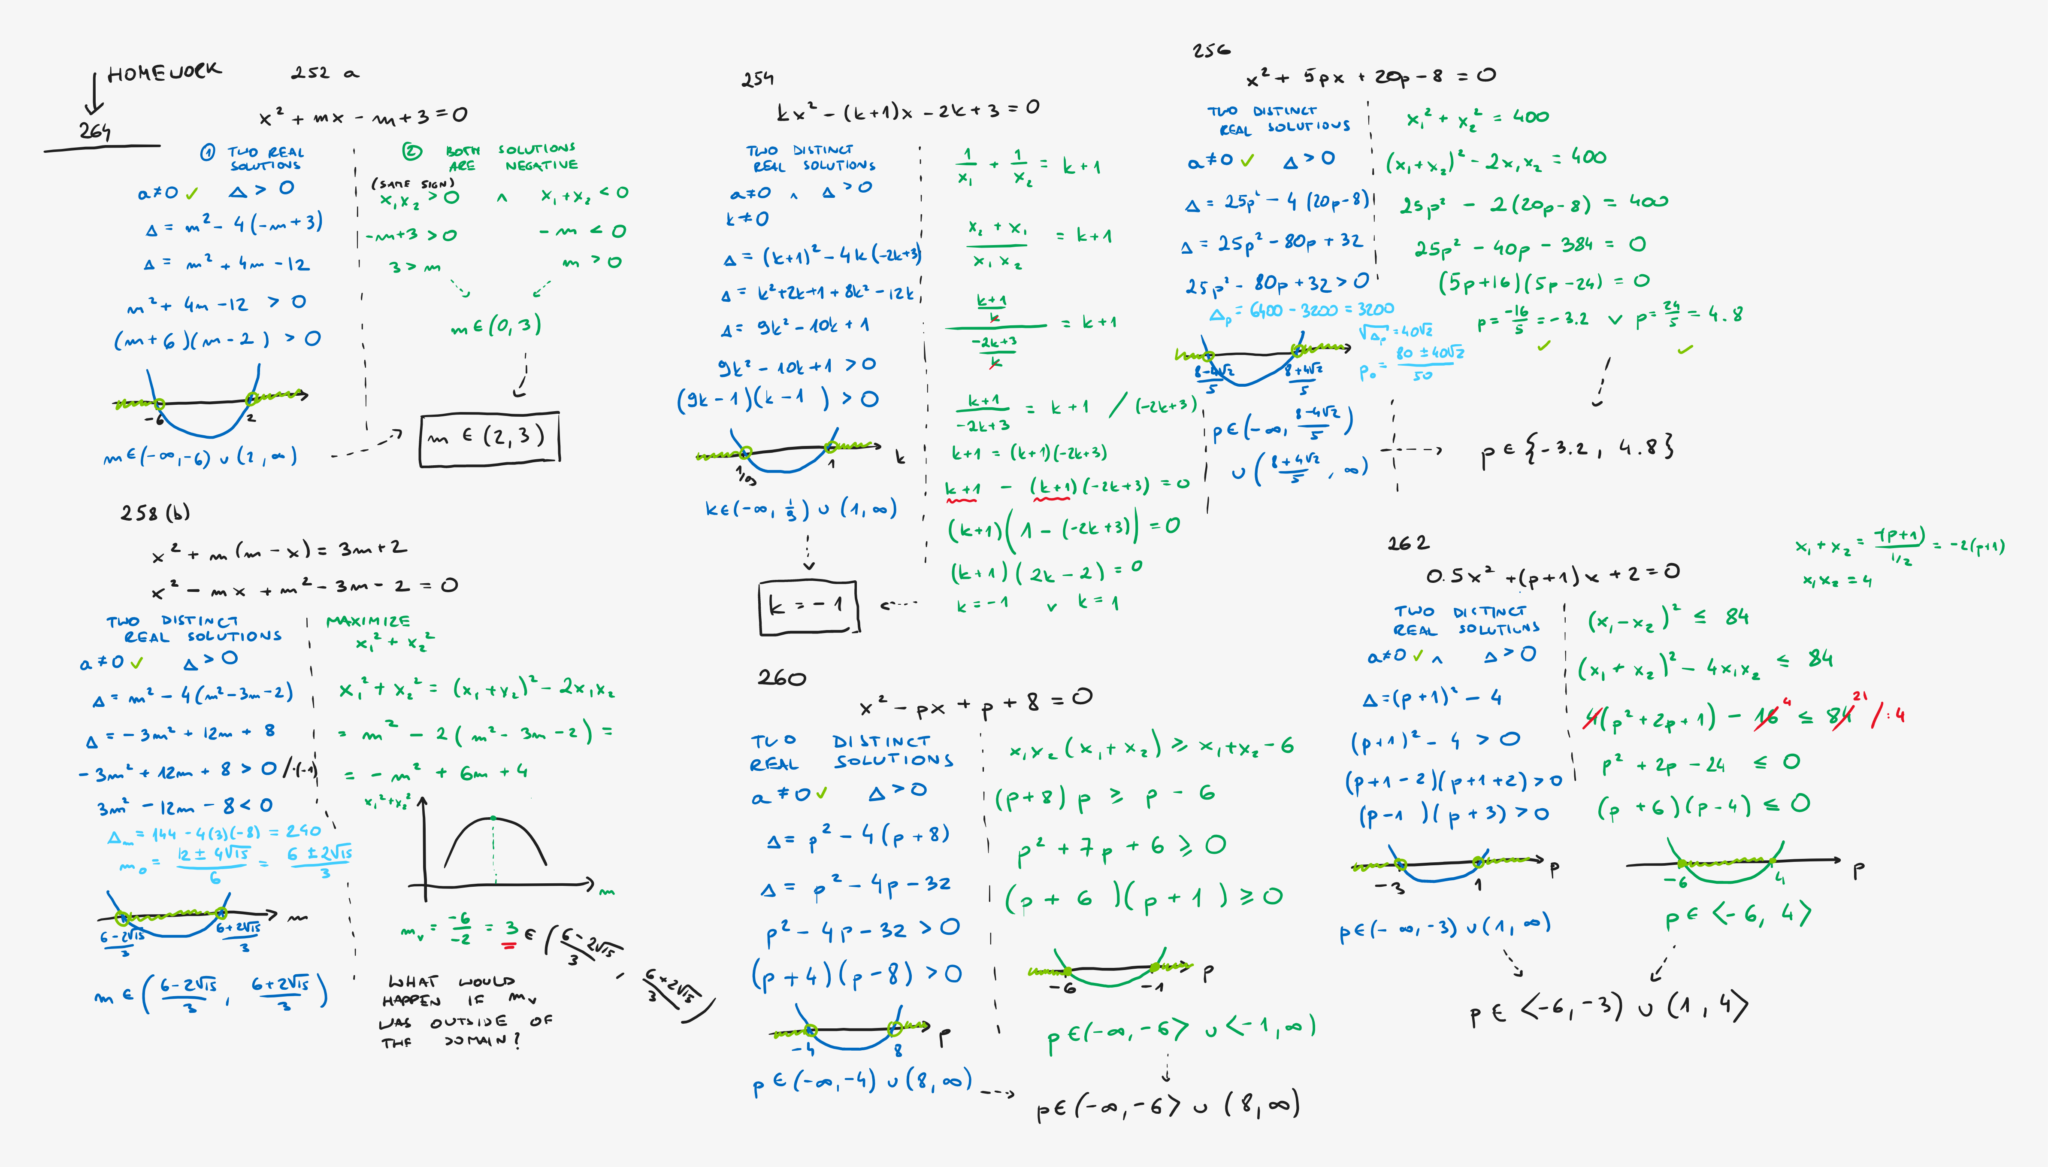 HOMEWORK
264
252 a
x² + mx - m + 3 = 0
① TWO REAL SOLUTIONS
a≠0 ✓ Δ > 0
Δ = m² - 4(-m+3)
Δ = m² + 4m - 12
m² + 4m - 12 > 0
(m+6)(m-2) > 0
-6 2
m∈(-∞,-6) ∪ (2,∞)
② BOTH SOLUTIONS ARE NEGATIVE
(SAME SIGN)
x₁x₂ > 0 ∧ x₁+x₂ < 0
-m+3 > 0 -m < 0
3 > m m > 0
m∈(0,3)
m ∈ (2,3)
254
kx² - (k+1)x - 2k + 3 = 0
TWO DISTINCT
REAL SOLUTIONS
a≠0 ∧ Δ > 0
k≠0
Δ = (k+1)² - 4k(-2k+3)
Δ = k²+2k+1+8k²-12k
Δ = 9k² - 10k + 1
9k² - 10k + 1 > 0
(9k-1)(k-1) > 0
1/9 1 k
k∈(-∞, 1/9) ∪ (1,∞)
1/x₁ + 1/x₂ = k+1
(x₂ + x₁)/(x₁x₂) = k+1
((k+1)/k)/((-2k+3)/k) = k+1
(k+1)/(-2k+3) = k+1 / (-2k+3)
k+1 = (k+1)(-2k+3)
k+1 - (k+1)(-2k+3) = 0
(k+1)(1 - (-2k+3)) = 0
(k+1)(2k-2) = 0
k = -1 ∨ k = 1
k = -1
256
x² + 5px + 20p - 8 = 0
TWO DISTINCT
REAL SOLUTIONS
a≠0 ✓ Δ > 0
Δ = 25p² - 4(20p-8)
Δ = 25p² - 80p + 32
25p² - 80p + 32 > 0
Δp = 6400 - 3200 = 3200
√Δp = 40√2
p₀ = (80 ± 40√2)/50
(8-4√2)/5 (8+4√2)/5
p∈(-∞, (8-4√2)/5)
∪ ((8+4√2)/5, ∞)
x₁² + x₂² = 400
(x₁+x₂)² - 2x₁x₂ = 400
25p² - 2(20p-8) = 400
25p² - 40p - 384 = 0
(5p+16)(5p-24) = 0
p = -16/5 = -3.2 ∨ p = 24/5 = 4.8
✓ ✓
p∈{-3.2, 4.8}
258 (b)
x² + m(m-x) = 3m+2
x² - mx + m² - 3m - 2 = 0
TWO DISTINCT
REAL SOLUTIONS
a≠0 ✓ Δ > 0
Δ = m² - 4(m²-3m-2)
Δ = -3m² + 12m + 8
-3m² + 12m + 8 > 0 /·(-1)
3m² - 12m - 8 < 0
Δm = 144 - 4(3)(-8) = 240
m₀ = (12 ± 4√15)/6 = (6 ± 2√15)/3
(6-2√15)/3 (6+2√15)/3 m
m∈((6-2√15)/3, (6+2√15)/3)
MAXIMIZE
x₁² + x₂²
x₁² + x₂² = (x₁+x₂)² - 2x₁x₂
= m² - 2(m² - 3m - 2) =
= -m² + 6m + 4
x₁²+x₂²
m
mᵥ = -6/-2 = 3 ∈ ((6-2√15)/3, (6+2√15)/3)
WHAT WOULD
HAPPEN IF mᵥ
WAS OUTSIDE OF
THE DOMAIN?
260
x² - px + p + 8 = 0
TWO DISTINCT
REAL SOLUTIONS
a≠0 ✓ Δ > 0
Δ = p² - 4(p+8)
Δ = p² - 4p - 32
p² - 4p - 32 > 0
(p+4)(p-8) > 0
-4 8 p
p∈(-∞,-4) ∪ (8,∞)
x₁x₂(x₁+x₂) ≥ x₁+x₂-6
(p+8)p ≥ p - 6
p² + 7p + 6 ≥ 0
(p+6)(p+1) ≥ 0
-6 -1 p
p∈(-∞,-6> ∪ <-1,∞)
p∈(-∞,-6> ∪ (8,∞)
262
0.5x² + (p+1)x + 2 = 0
x₁ + x₂ = -(p+1)/(1/2) = -2(p+1)
x₁x₂ = 4
TWO DISTINCT
REAL SOLUTIONS
a≠0 ✓ ∧ Δ > 0
Δ = (p+1)² - 4
(p+1)² - 4 > 0
(p+1-2)(p+1+2) > 0
(p-1)(p+3) > 0
-3 1 p
p∈(-∞,-3) ∪ (1,∞)
(x₁-x₂)² ≤ 84
(x₁+x₂)² - 4x₁x₂ ≤ 84
4(p²+2p+1) - 16 4 ≤ 84 21 /:4
p² + 2p - 24 ≤ 0
(p+6)(p-4) ≤ 0
-6 4 p
p∈<-6, 4>
p∈<-6,-3) ∪ (1,4>